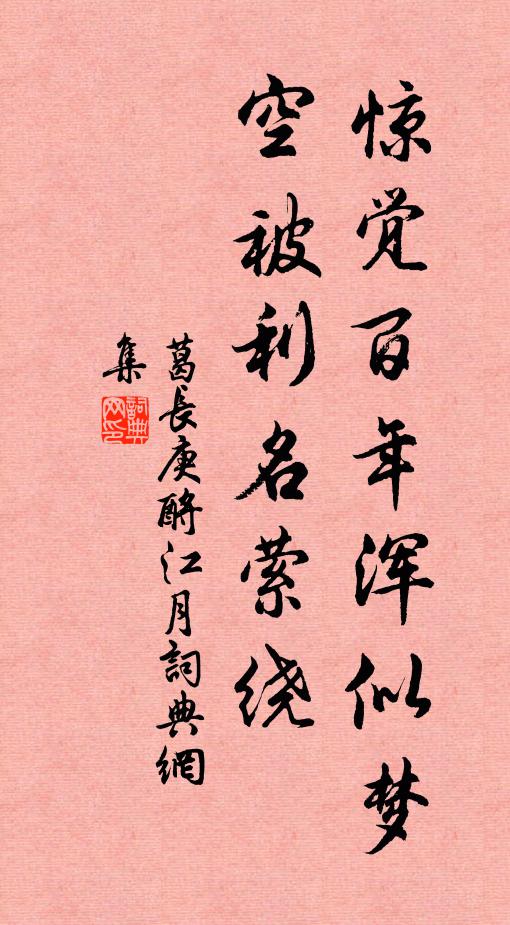 惊觉百年浑似梦
空被利名萦绕
葛長庚酹江月詞典網
集
詞典网印